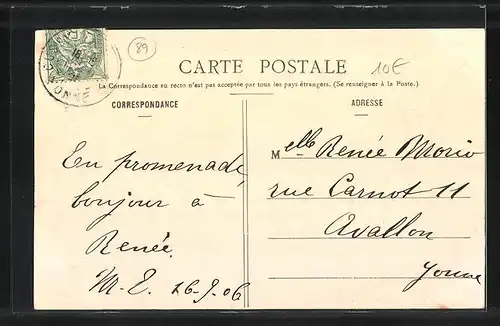 89
CARTE POSTALE
10€
La Correspondance au recto n'est pas acceptée par tous les pays étrangers. (Se renseigner à la Poste.)
CORRESPONDANCE
ADRESSE
En promenade,
bonjour à
Renée.
M-E. 26-9-06
Melle Renée Morio
rue Carnot 11
Avallon
Yonne